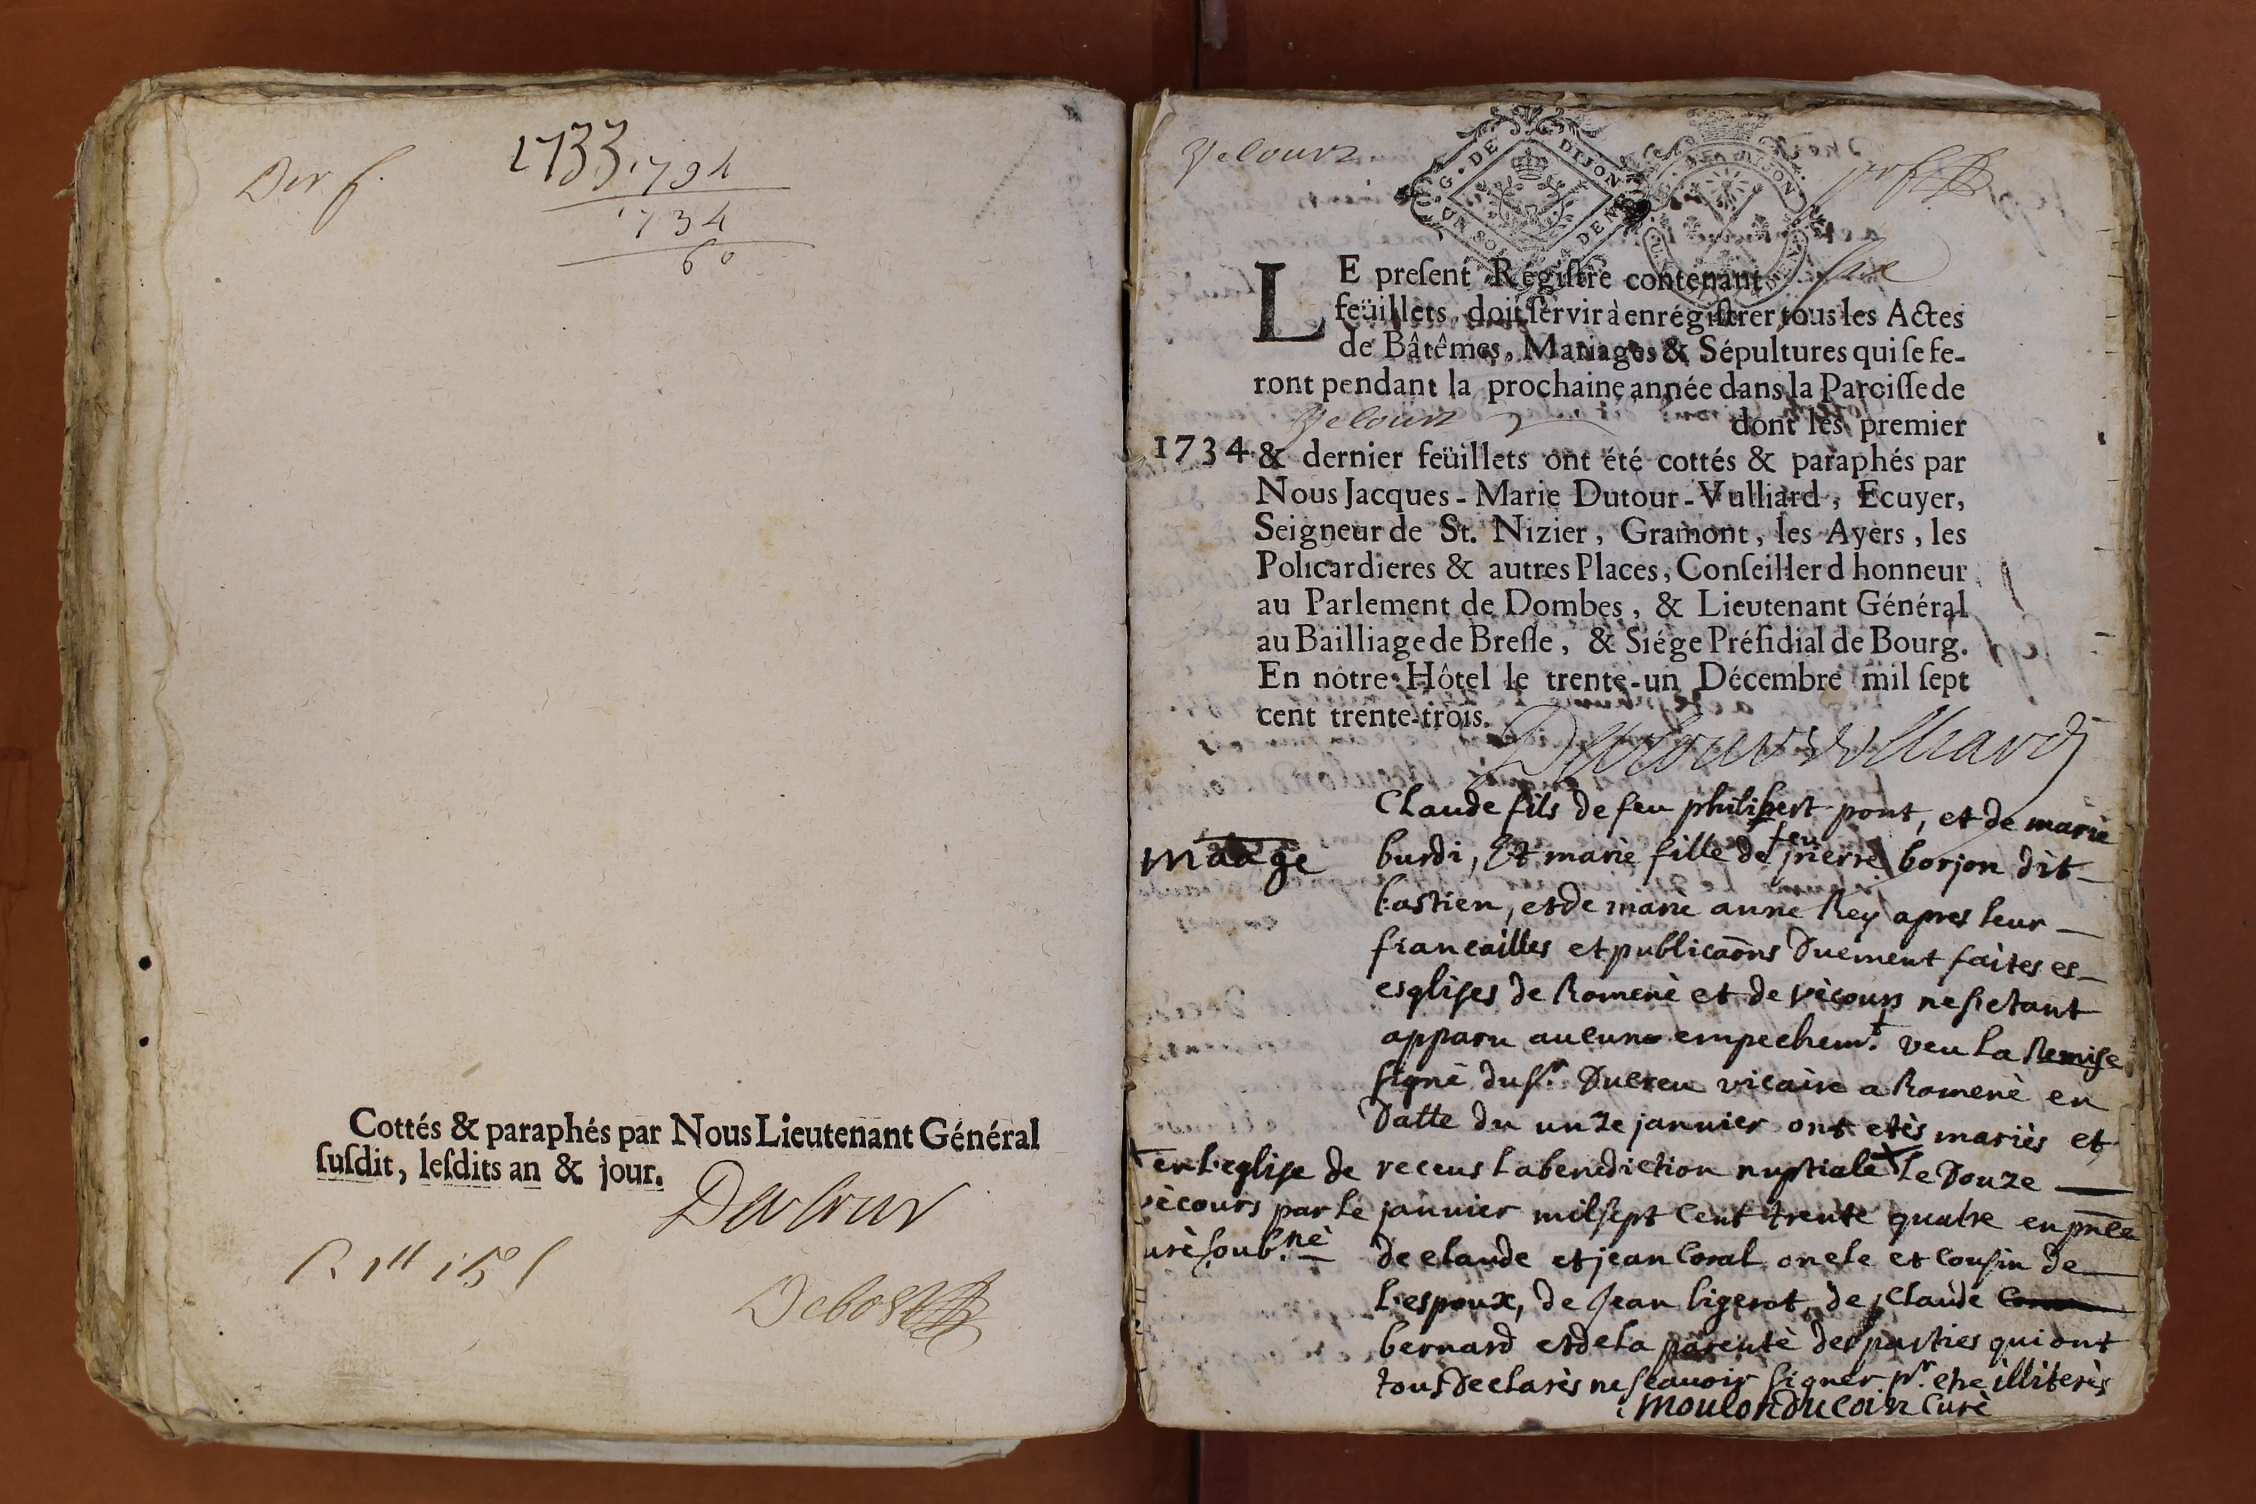 Der f.
1733
1794
1734
60
Cottés & paraphés par Nous Lieutenant Général
ſuſdit, leſdits an & jour.
Dutour
Debost
Vécours
G. DE DIJON
UN SOL DEN
DIJON
six
LE preſent Régiſtre contenant
feüillets, doit ſervir à enrégiſtrer tous les Actes
de Bâtêmes, Mariages & Sépultures qui ſe fe-
ront pendant la prochaine année dans la Paroiſſe de
Vécours dont les premier
1734. & dernier feüillets ont été cottés & paraphés par
Nous Jacques-Marie Dutour-Vulliard, Ecuyer,
Seigneur de St. Nizier, Gramont, les Ayers, les
Policardieres & autres Places, Conſeiller d honneur
au Parlement de Dombes, & Lieutenant Général
au Bailliage de Breſſe, & Siége Préſidial de Bourg.
En nôtre Hôtel le trente-un Décembre mil ſept
cent trente-trois.
Dutour vulliard
Claude fils de feu philibert pont, et de marie
maage
burdi, Et marie fille de feu pierre borjon dit
bastien, et de marie anne Rey apres leur
fiancailles et publicaōns Duement faites es
esglises de Romenè et de vècours ne s'ietant
apparu aucune empechem.t veu la Remise
signè du s.r Ducreu vicaire a Romenè en
Datte du unze janvier ont etès mariès et
receus la benediction nuptiale + le Douze
+ en l'eglise de
vècours par le
curè soub.nè
janvier mil sept cent trente quatre en pn̄ce
de claude et jean Coral oncle et cousin de
l'espoux, de Jean ligerot, de Claude
bernard et de la parentè des parties qui ont
tous Declarès ne scavoir signer p.r etre illiterès
moulonducoin Curè